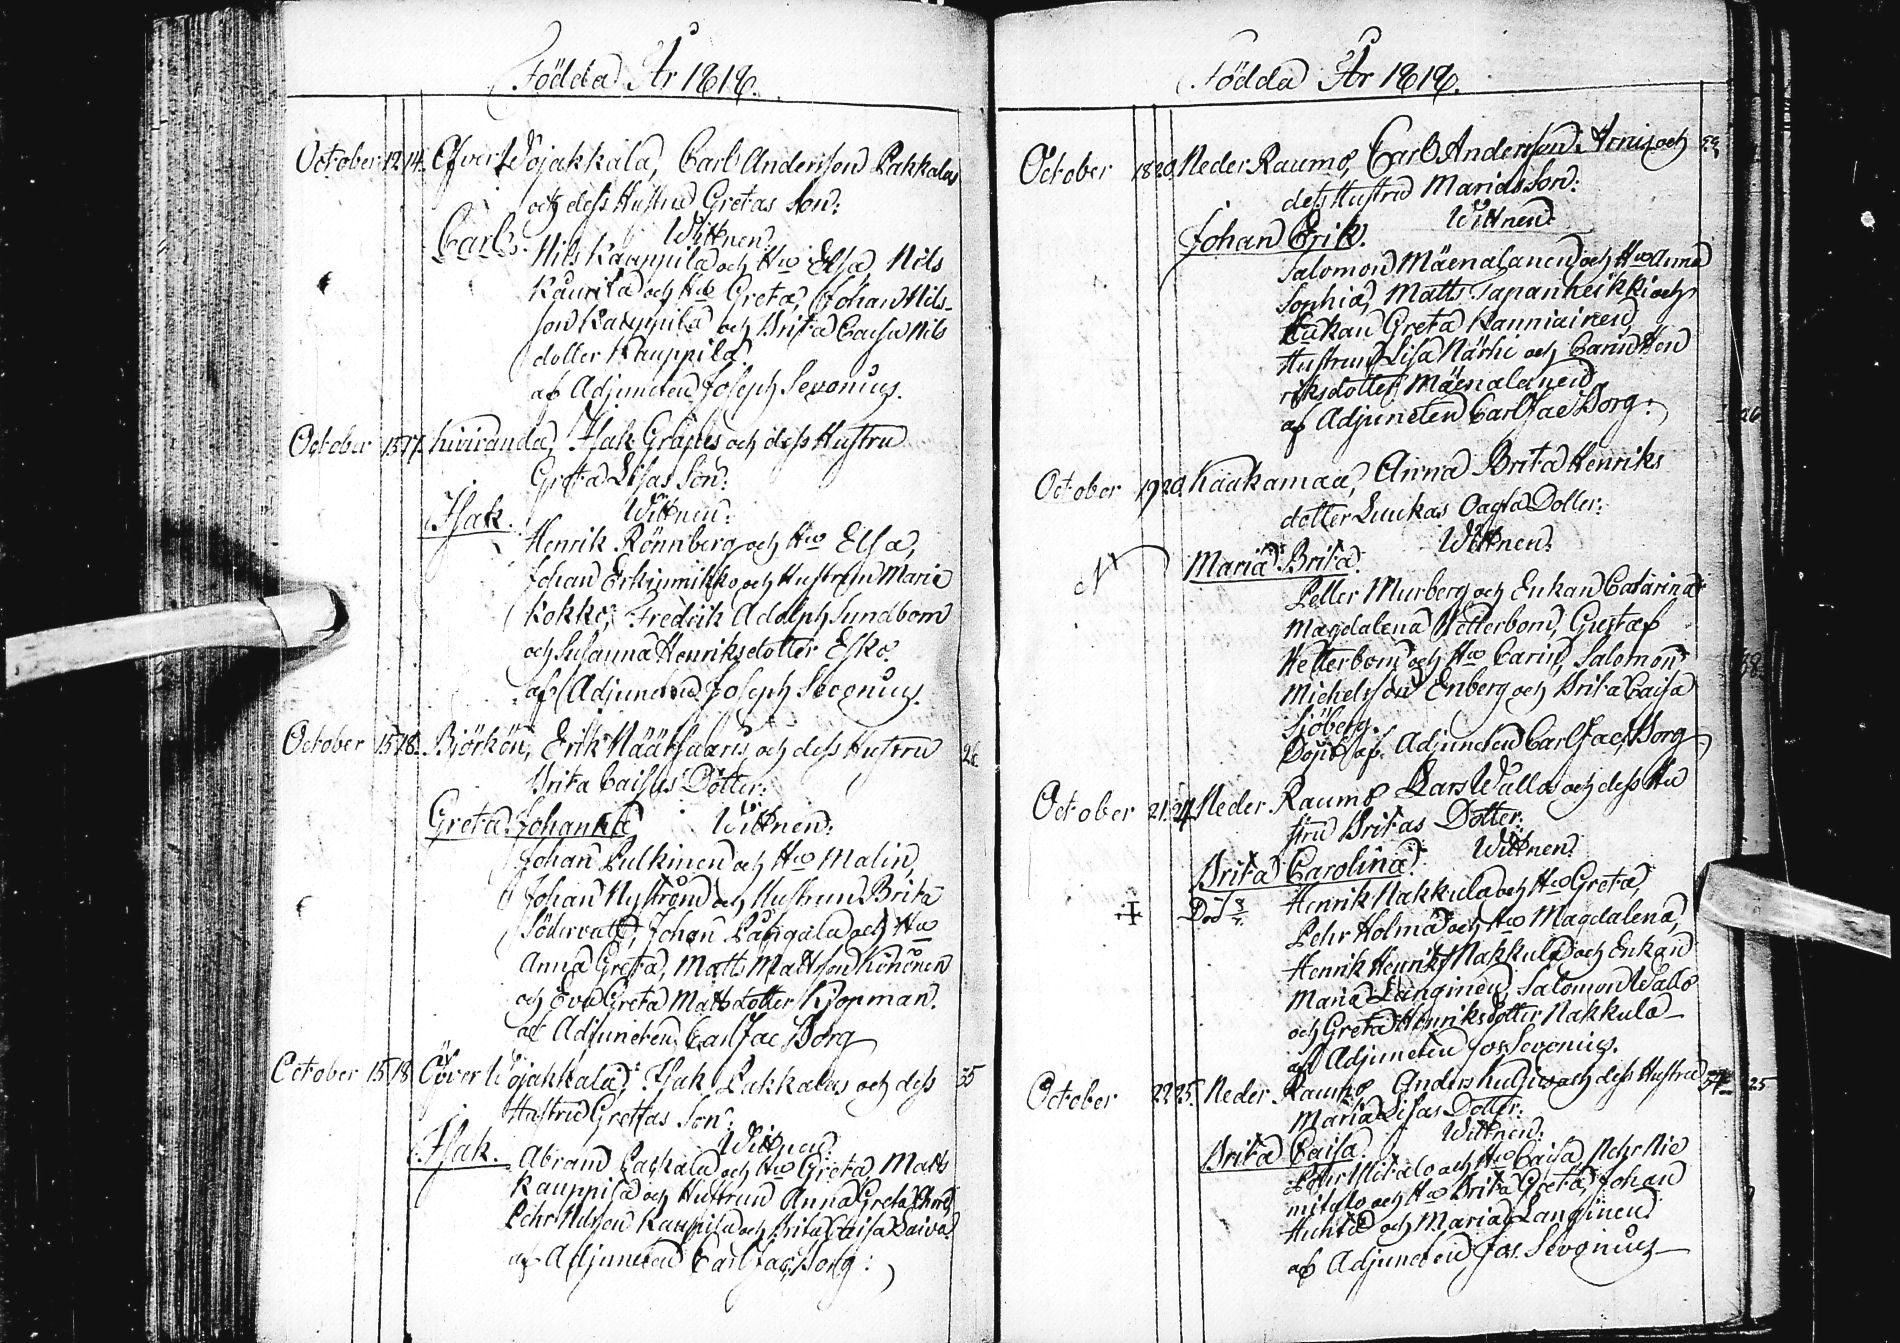 Födda År 1818.
October 12 14. Öfver Wojakkala, Carl Andersson Lakkalas
och dess Hustru Gretas Son:
Wittnen:
Carl.
Nils Kauppila och H:o Elsa, Nils
Kauppila och H:o Greta, Johan Nils-
son Kauppila och Brita Caisa Nils
dotter Kauppila.
af Adjuncten Joseph Sevonius.
October 15 17. Kiviranda, Isak Grapes och dess Hustru
Greta Lisas Son:
Wittnen:
Isak.
Henrik Rönnberg och H:o Elsa,
Johan Erkinmikko och Hustrun Maria
Kokko, Fredrik Adolph Sundbom
och Susanna Henriksdotter Esko.
af Adjuncten Joseph Sevonius.
October 15 18. Björkön, Erik Näätsaaris och dess Hustru 26
Brita Caisas Dotter:
Greta Johanna Wittnen:
Johan Pulkinen och H:o Malin,
Johan Nyström och Hustrun Brita
Södervall, Johan Langala och H:o
Anna Greta, Matts Mattsson Könönen
och Eva Greta Matsdotter Kjopman.
af Adjuncten Carl Jac Borg
October 15 18 Öfver Wojakkala, Isak Lakkalas och dess 35
Hustru Gretas Son:
Wittnen:
Isak.
Abram Lakkala och H:o Greta, Matts
Kauppila och Hustrun Anna Greta
Pehr Nilsson Kauppila och Brita Caisa
af Adjuncten Carl Jac. Borg:
Födda År 1818.
October 18 20. Neder Raumo, Carl Andersson Arnis och
dess Hustru Marias Son:
Wittnen:
Johan Erik.
Salomon Mäenalanen och H:o Anna
Sophia, Matts Tapanheikki och
Enkan Greta Kanniainen,
Hustrun Lisa Närhi och Carin Hen
riksdotter Mäenalanen
af Adjuncten Carl Jac Borg: 26
October 19 20. Kaakamaa, Anna Brita Henriks
dotter Luukas Oägta Dotter:
Wittnen:
Maria Brita.
Petter Murberg och Enkan Catarina
Magdalena Wetterbom, Gustaf
Wetterbom och H:o Carin, Salomon
Michelsson Enberg och Brita Caisa
Sjöberg.
Döpt af Adjuncten Carl Jac. Borg
October 21 24. Neder Raumo Lars Wallos och dess Hu
stru Britas Dotter:
Wittnen:
Brita Carolina.
Död
Henrik Nakkula och H:o Greta,
Pehr Holma och H:o Magdalena,
Henrik Henriks Nakkula och Enkan
Maria Langinen, Salomon Wallo
och Greta Henriksdotter Nakkula
af Adjuncten Jos Sevonius.
October 22 25. Neder Raumo Anders Huhtas och dess Hustru 25
Maria Lisas Dotter:
Wittnen:
Brita Caisa.
Pehr Nitalo och H:o Caisa, Pehr Nie
mitalo och H:o Brita Greta, Johan
Huhta och Maria Langinen
af Adjuncten Jos. Sevonius